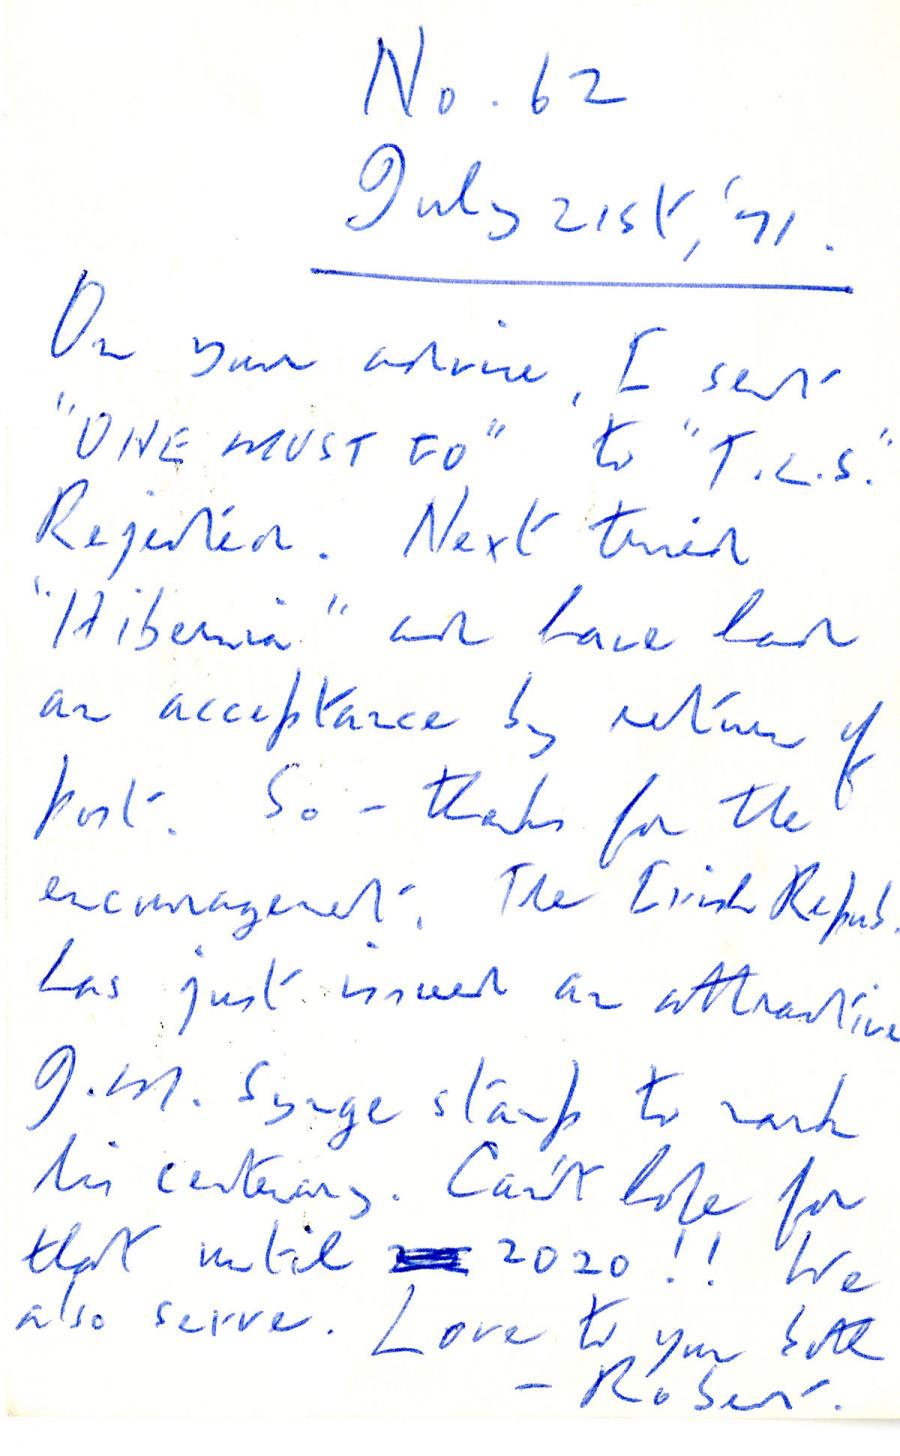 No. 62
July 21st, '71.
On your advice, I sent
"ONE MUST GO" to "T.L.S."
Rejection. Next tried
"Hibernia" and have had
an acceptance by return of
post. So – thanks for the
encouragement. The Irish Repub.
has just issued an attractive
J.M. Synge stamp to mark
his centenary. Can't hope for
that until 2020!! We
also serve. Love to you both
– Robert.